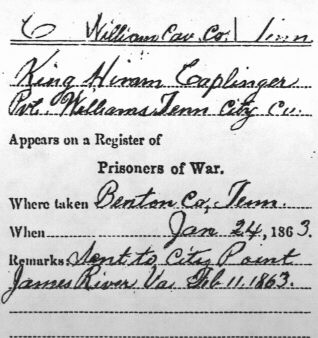 C William Cav. Co. | Tenn
King Hiram Caplinger
Pvt. Williams Tenn City Co.
Appears on a Register of
Prisoners of War.
Where taken Benton Co, Tenn.
When Jan 24, 1863.
Remarks: Sent to City Point
James River Va. Feb 11. 1863.